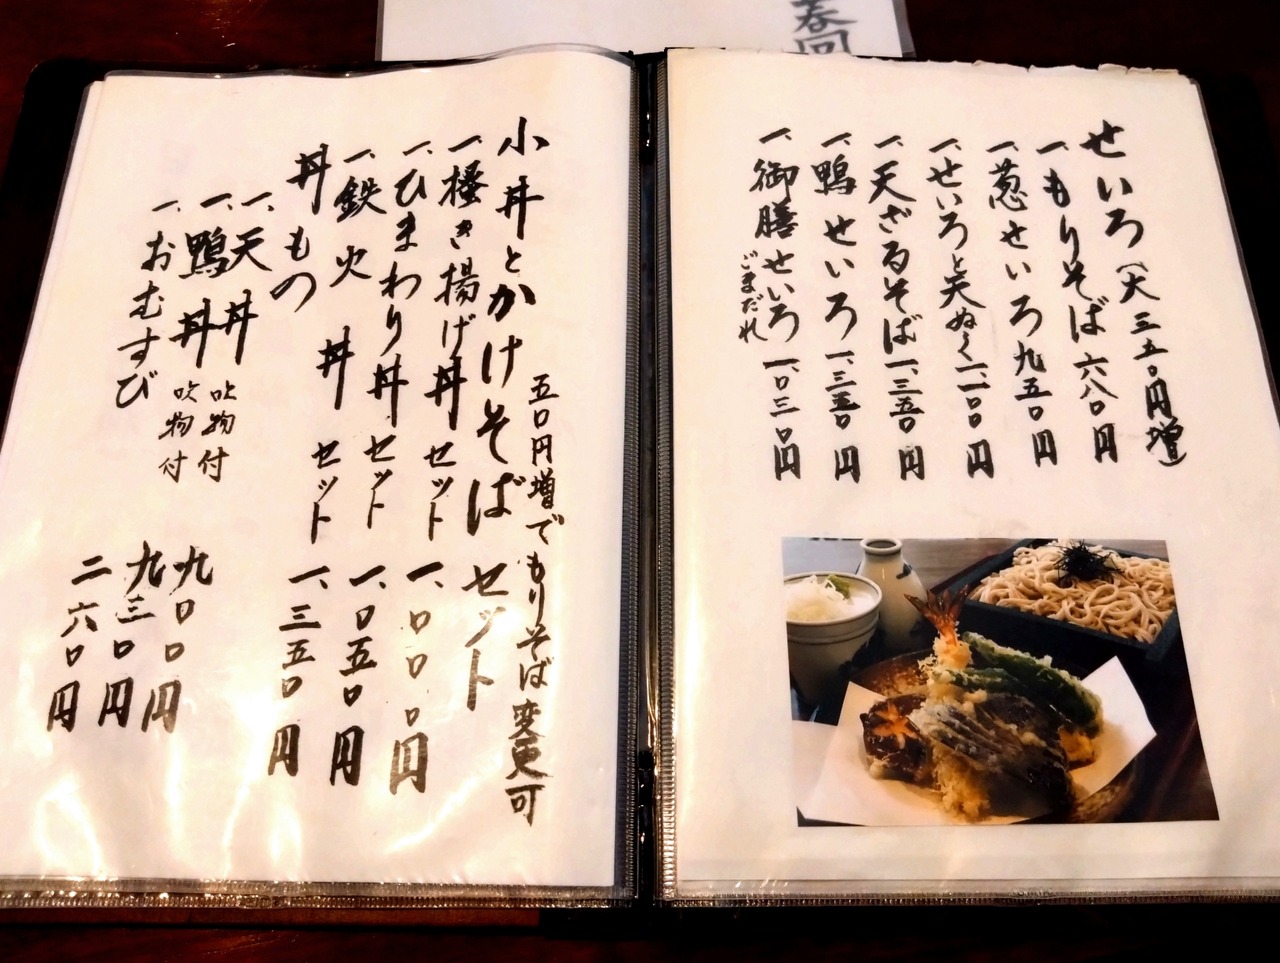 せいろ(大 三五〇円増)
一、もりそば 六八〇円
一、葱せいろ 九五〇円
一、せいろと天ぬき 一、一〇〇円
一、天ざるそば 一、三五〇円
一、鴨せいろ 一、三五〇円
一、御膳せいろ 一、〇三〇円
ごまだれ
五〇円増でもりそば変更可
小丼とかけそばセット
一、掻き揚げ丼セット 一、〇〇〇円
一、ひまわり丼セット 一、〇五〇円
一、鉄火丼セット 一、三五〇円
丼もの
一、天丼 吸物付 九〇〇円
一、鴨丼 吸物付 九三〇円
一、おむすび 二六〇円